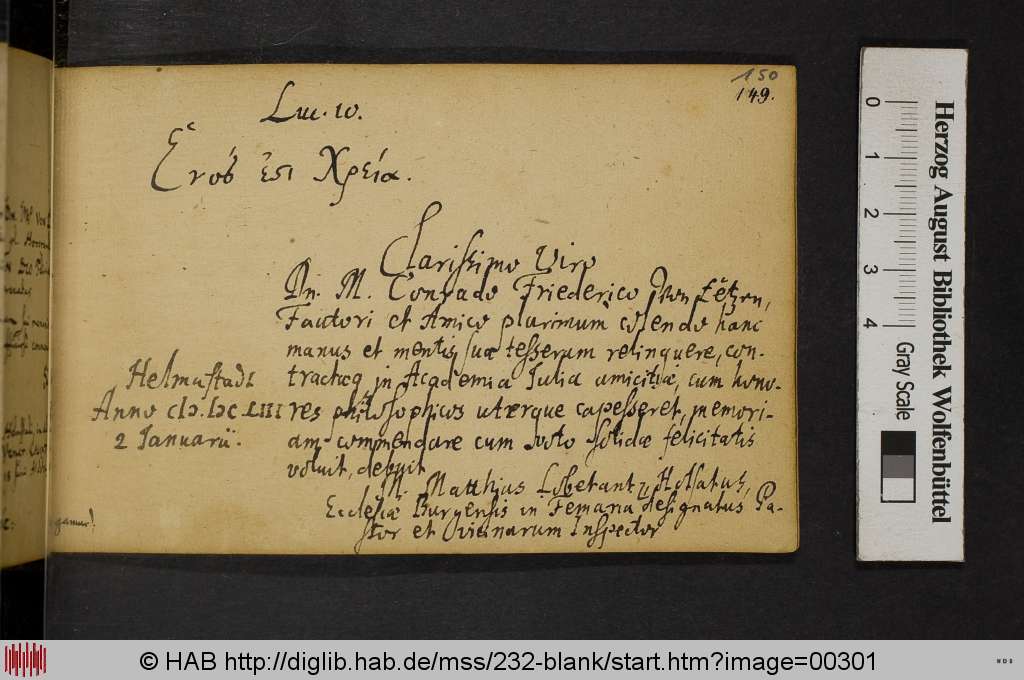 150
149.
Luc. 10.
Ἑνός ἐστι Χρεία.
Clarissimo Viro
Dn. M. Conrado Friederico
Fautori et Amico plurimum colendo hanc
manus et mentis suae tesseram relinquere, con-
tractaeq in Academia Julia amicitiae, cum hono-
res philosophicos uterque capesseret, memori-
am commendare cum voto solidae felicitatis
voluit, debuit
M. Matthias Lobetantz, Holsatus,
Ecclesiae Burgensis in Femaria designatus Pa-
stor et vicinarum Inspector
Helmastadi
Anno cIɔ.Iɔc.LIII
2 Januarii.
Herzog August Bibliothek Wolfenbüttel
0 1 2 3 4 Gray Scale
© HAB http://diglib.hab.de/mss/232-blank/start.htm?image=00301